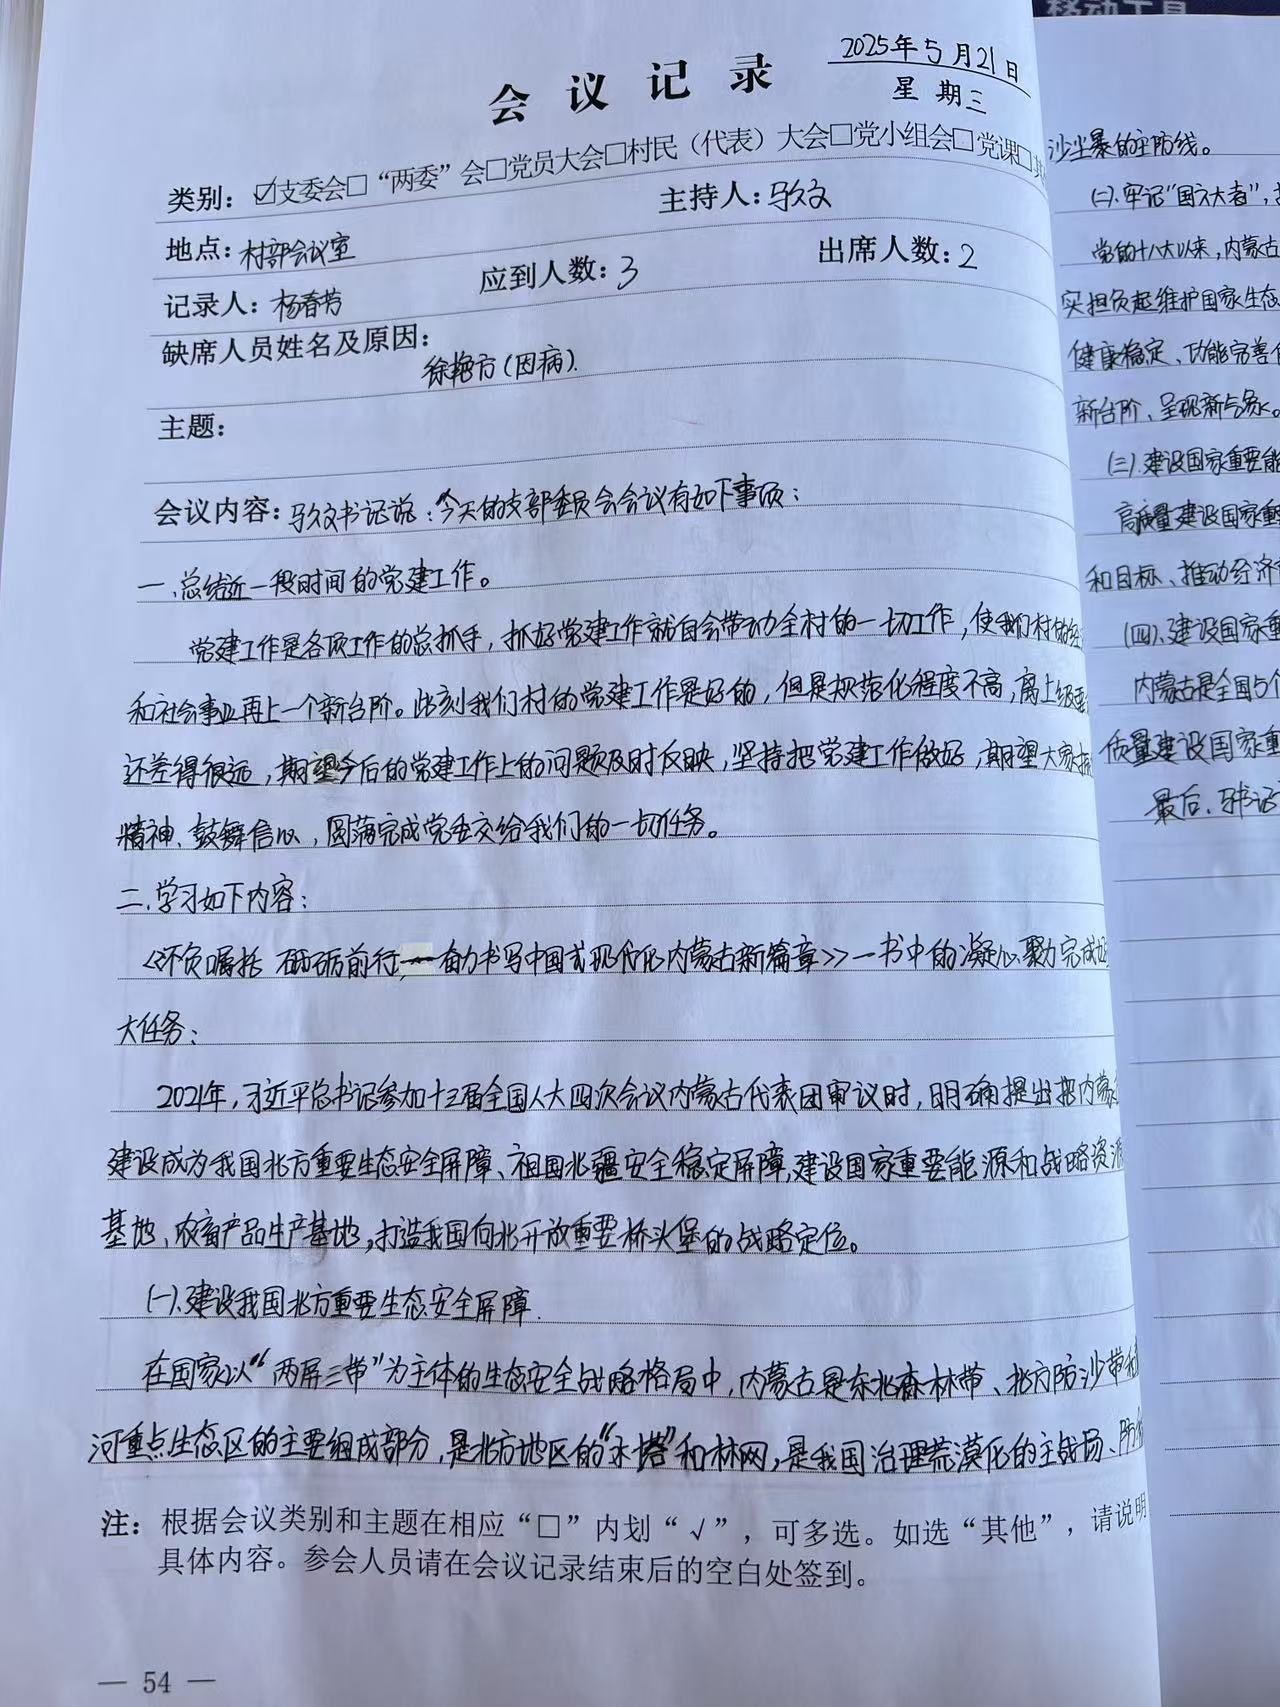 移动工具
会议记录
2025年5月21日
星期三
类别：☑支委会□“两委”会□党员大会□村民（代表）大会□党小组会□党课□其
地点：村部会议室
主持人：马久文
记录人：杨春芳
应到人数：3
出席人数：2
缺席人员姓名及原因：
徐艳方(因病).
主题：
会议内容：马久文书记说：今天的支部委员会会议有如下事项：
一.总结近一段时间的党建工作。
党建工作是各项工作的总抓手，抓好党建工作就自会带动全村的一切工作，使我们村的经
和社会事业再上一个新台阶。此刻我们村的党建工作是好的，但是规范化程度不高，离上级要
还差得很远，期望今后的党建工作上的问题及时反映，坚持把党建工作做好，期望大家振
精神、鼓舞信心，圆满完成党委交给我们的一切任务。
二.学习如下内容：
《不负嘱托 砥砺前行，奋力书写中国式现代化内蒙古新篇章》一书中的凝心聚力完成
大任务：
2021年，习近平总书记参加十三届全国人大四次会议内蒙古代表团审议时，明确提出把内蒙
建设成为我国北方重要生态安全屏障、祖国北疆安全稳定屏障，建设国家重要能源和战略资源
基地、农畜产品生产基地，打造我国向北开放重要桥头堡的战略定位。
(一).建设我国北方重要生态安全屏障.
在国家以“两屏三带”为主体的生态安全战略格局中，内蒙古是东北森林带、北方防沙带和
河重点生态区的主要组成部分，是北方地区的“水塔”和林网，是我国治理荒漠化的主战场、防
注：根据会议类别和主题在相应“□”内划“√”，可多选。如选“其他”，请说明
具体内容。参会人员请在会议记录结束后的空白处签到。
— 54 —
沙尘暴的主防线。
(二).牢记“国之大者”，
党的十八大以来，内蒙古
实担负起维护国家生态
健康稳定、功能完善
新台阶、呈现新气象。
(三).建设国家重要能
高质量建设国家重
和目标、推动经济
(四).建设国家重
内蒙古是全国5个
质量建设国家重
最后，马书记